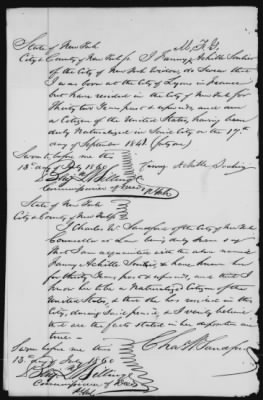 State of New York
City & County of New York ss. I Fanny Achille
of the City of New York do Swear that
I was born at the City of Lyons in France
but have resided in the City of New York for
thirty two years past & upwards, and am
a Citizen of the United States, having been
duly Naturalized in said City on the 17th
day of September 1841
Sworn before me this
13th day of July 1860
Fanny Achille
Commissioner of Deeds
State of New York
City & County of New York ss
I Charles W. Sandford of the City of New York
Counsellor at Law being duly sworn say
that I am acquainted with the above named
Fanny Achille & have known
for thirty years past & upwards, and that I
know her to be a Naturalized Citizen of the
United States, & that she has resided in this
City, during said period, & I verily believe
that are the facts stated in her deposition are
true —
Sworn before me this
13th day of July 1860
Chas W Sandford
Commissioner of Deeds